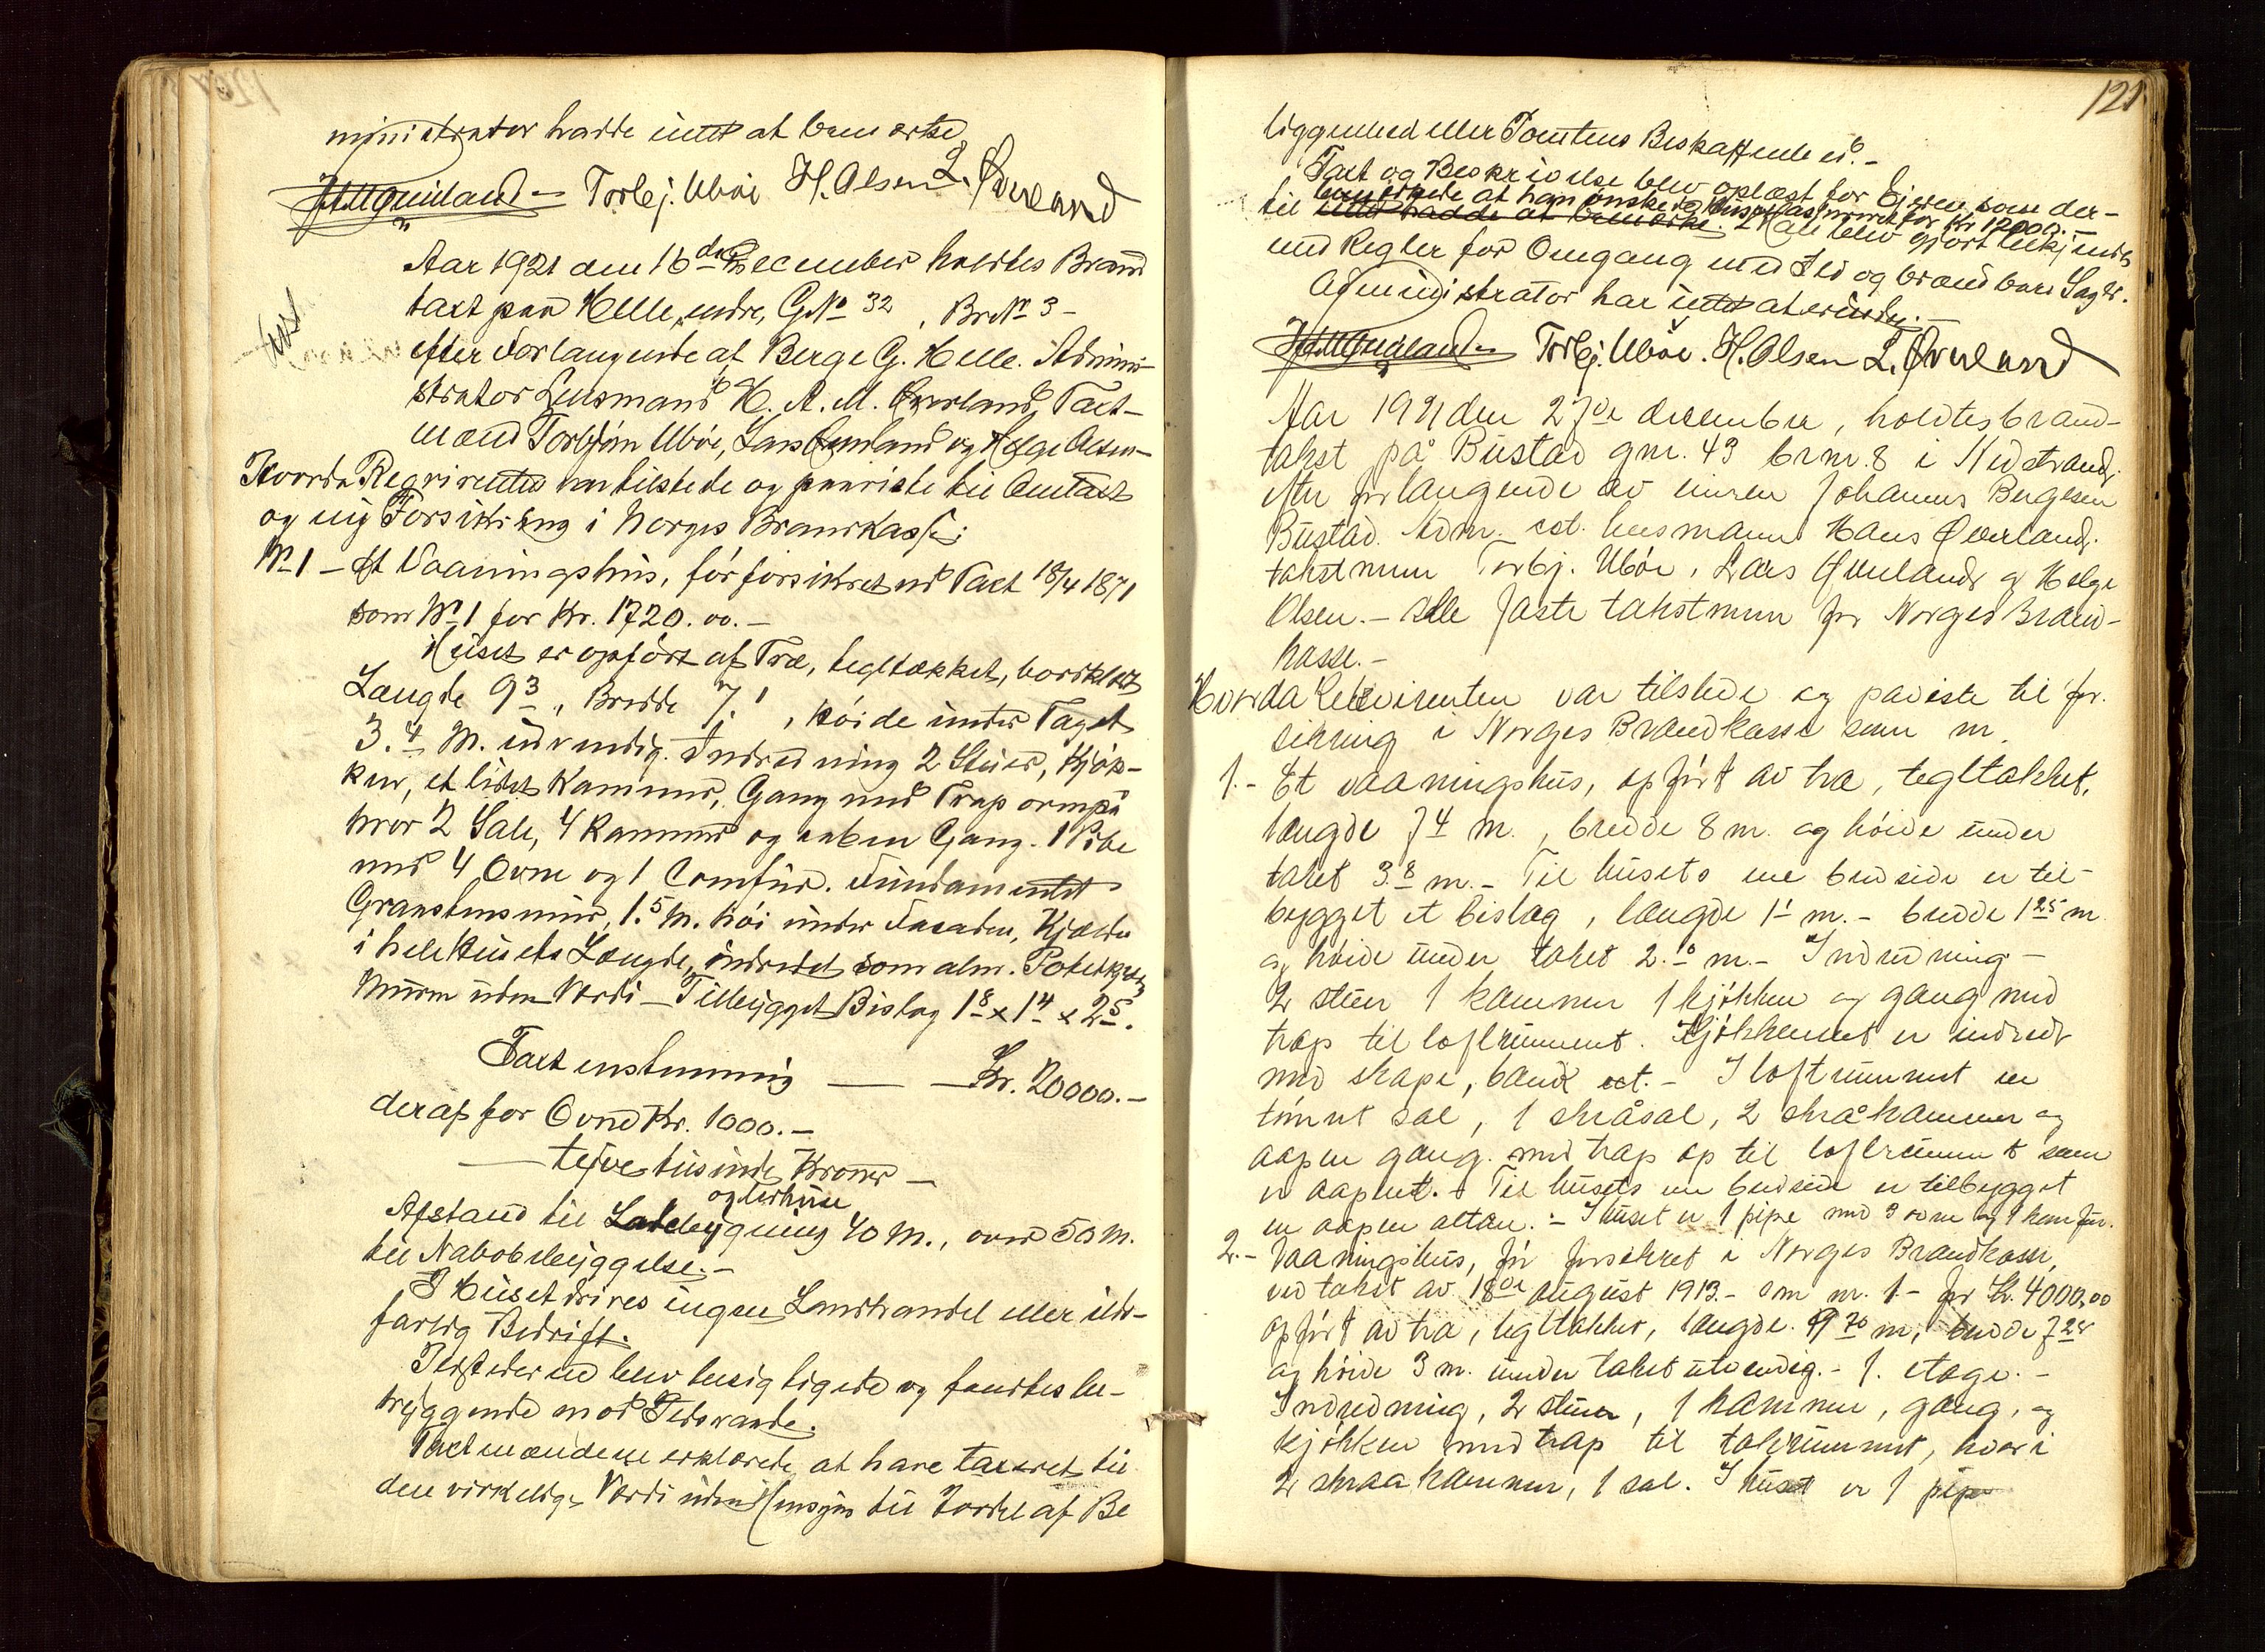 ministrator hadde intet at bemerke
Torbj. Ubøe H. Olsen L. Øverland
Aar 1921 den 16de December holdtes Brand
taxt paa Helle, indre, GNo 32, BrNo 3 –
efter Forlangende af Berge G. Helle. Admini-
strator Lensmand H. A. M. Øverland, Taxt-
mænd Torbjørn Ubøe, Lars Øverland og Helge Olsen –
Hvorda Reqvirenten var tilstede og paaviste til Omtaxt
og ny Forsikring i Norges Brandkasse:
No 1 – Et Vaaningshus, før forsikret ved Taxt 18/4 1871
som No 1 for Kr. 1720.00. –
Huset er opført af Træ, tegltækket, bordklædt
Længde 9.3, Bredde 7.1, Høide under Taget
3.4 M. udvendig. Indredning 2 Stuer, Kjøk-
ken, et lidet Kammer, Gang med Trap ovenpaa
hvor 2 Sale, 4 Kammer og aaben Gang. 1 Pibe
med 4 Ovne og 1 Comfur. Fundamentet
Graastensmur, 1.5 M. høi under Facaden, Kjælder
i hele Husets Længde, indredet som alm. Potetkjelder
Muren uden Værdi – Tilbygget Bislag 1.8 x 1.4 x 2.5.
Taxt enstemmig — Kr. 20000. –
deraf for Ovne Kr. 1000. –
— tyve tusinde Kroner —
og Ildhuse
Afstand til Ladebygning 40 M., over 50 M.
til Nabobebyggelse. –
I Huset drives ingen Landhandel eller ild-
farlig Bedrift.
Ildstederne blev besigtigede og fandtes be-
tryggende mod Ildsvaade.
Taxtmændene erklærede at have taxeret til
den virkelige Værdi uden Hensyn til Fordel af Be
121
liggenhed eller Tomtens Beskaffenhed. –
Taxt og Beskrivelse blev oplæst for Eieren som der-
bemerkede at han ønskede Huset assureret for Kr 12000. –
til intet hadde at bemerke. Han blev gjort bekjendt
med Regler for Omgang med Ild og brændbare Sager.
Administrator har intet at erindre. –
Torbj. Ubøe. H. Olsen L. Øverland
Aar 1921 den 27de december, holdtes brand-
takst på Bustad gnr. 43 brnr. 8 i Nedstrand,
efter forlangende av eieren Johannes Bergesen
Bustad. Adm. cst. lensmann Hans Øverland.
takstmenn Torbj. Ubøe, Lars Øverland og Helge
Olsen. – Alle faste takstmenn for Norges Brand-
kasse. –
Hvorda Rekvirenten var tilstede og paviste til for-
sikring i Norges Brandkasse som nr.
1. – Et vaaningshus, opført av træ, tegltækket,
længde 7.4 m., bredde 8 m. og høide under
taket 3.8 m. – Til husets ene bredside er til-
bygget et bislag, længde 1.1 m. – bredde 1.25 m
og høide under taket 2.10 m. – Indredning –
2 stuer 1 kammer 1 kjøkken og gang med
trap til loftrummet. Kjøkkenet er indredt
med skape, bænk ect. – I loftrummet en
tømret sal, 1 skråsal, 2 skråkammer og
aapen gang. med trap op til loftrummet som
er aapent. – Til husets ene bredside er tilbygget
en aapen altan. – I huset er 1 pipe med 3 ovne og 1 komfur.
2. – Vaaningshus, før forsikret i Norges Brandkasse,
ved takst av 18de august 1913. – som nr. 1 – for Kr. 4000,00
opført av træ, tegltækket, længde. 9.70 m, bredde 7.28
og høide 3 m. under taket utvendig. – 1. etage. –
Indredning, 2 stuer, 1 kammer, gang, og
kjøkken med trap til takrummet, hvori
2 skraakammer, 1 sal. I huset er 1 pipe